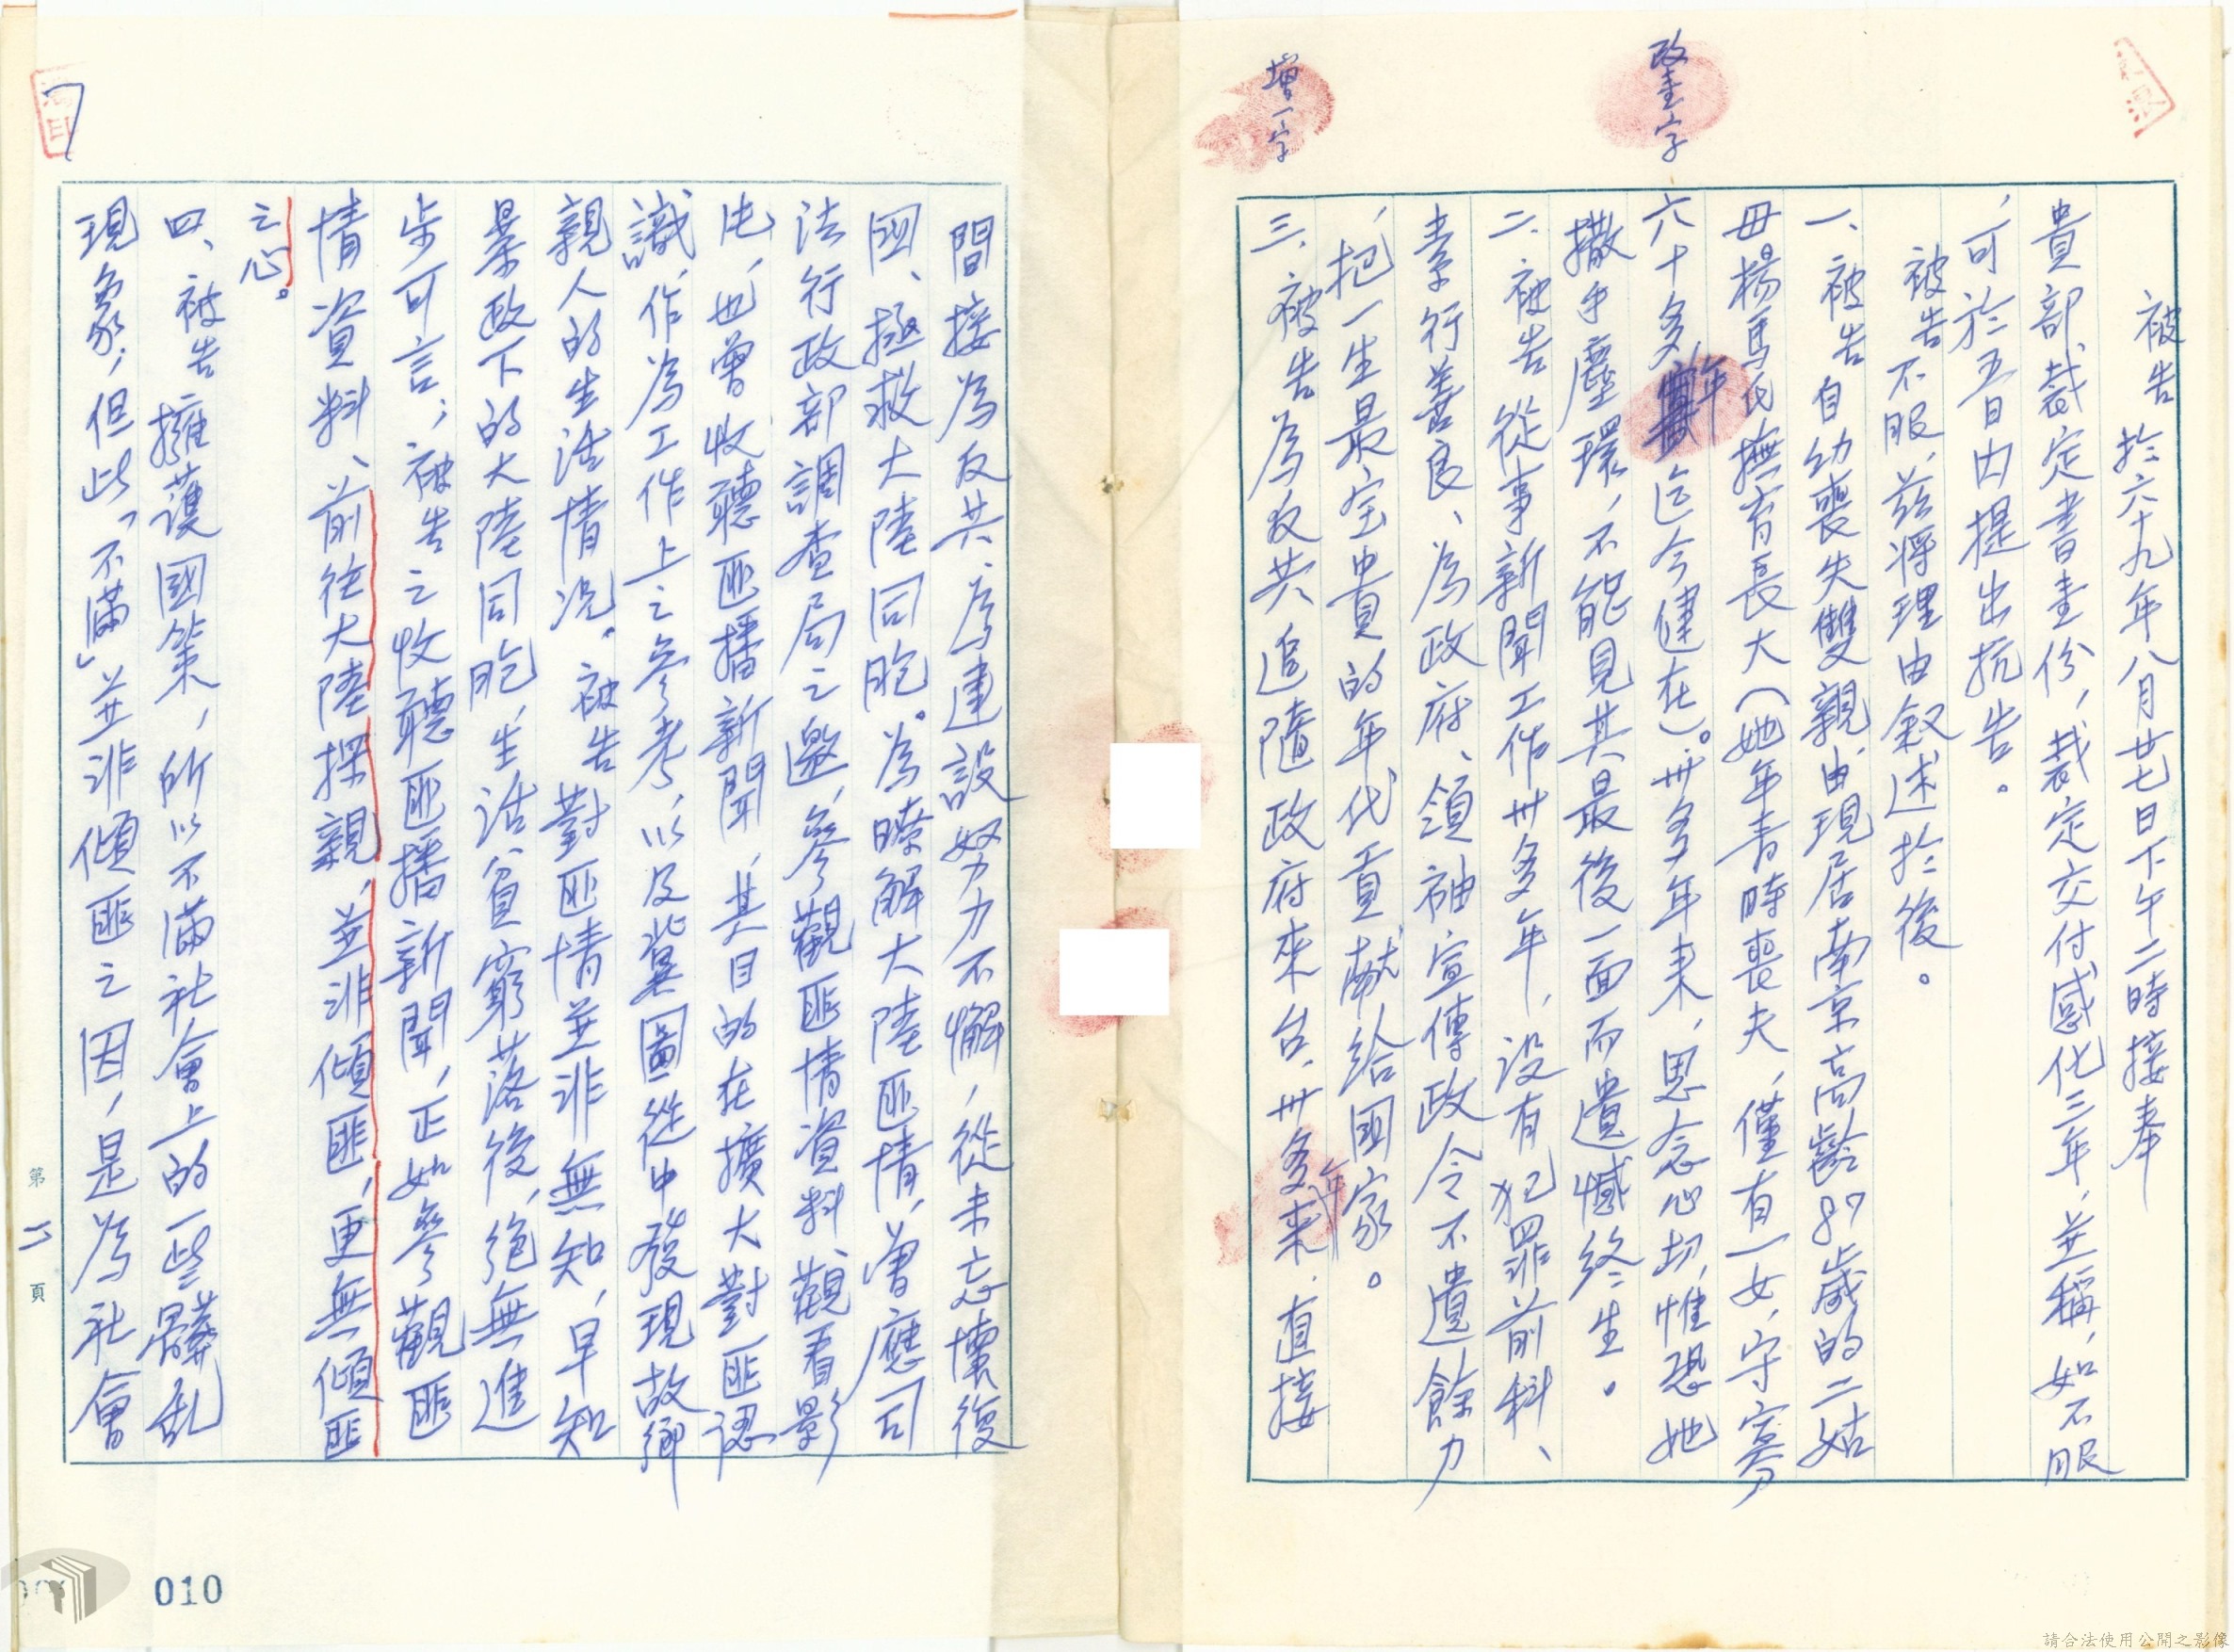 改壹字
增一字
被告於六十九年八月廿七日下午二時接奉
貴部裁定書壹份，裁定交付感化三年，並稱，如不服
，可於五日內提出抗告。
被告不服，茲將理由敘述於後。
一、被告自幼喪失雙親，由現居南京高齡87歲的二姑
母楊馬氏撫育長大（她年青時喪夫，僅有一女，守寡
六十多年迄今健在）。卅多年來，思念心切，惟恐她
撒手塵環，不能見其最後一面而遺憾終生。
二、被告從事新聞工作卅多年，没有犯罪前科、
素行善良、為政府、領袖宣傳政令不遺餘力
，把一生最宝貴的年代貢献給國家。
三、被告為反共追隨政府來台，卅多年來，直接
間接為反共、為建設努力不懈，從未忘懷復
國、拯救大陸同胞。為瞭解大陸匪情，曾應司
法行政部調查局之邀，參觀匪情資料、觀看影
片，也曾收聽匪播新聞，其目的在擴大對匪認
識，作為工作上之參考，以及冀圖從中發現故鄉
親人的生活情況。被告對匪情並非無知，早知
暴政下的大陸同胞，生活貧窮落後，絕無進
步可言，被告之收聽匪播新聞，正如參觀匪
情資料、前往大陸探親，並非傾匪，更無傾匪
之心。
四、被告擁護國策，所以不滿社會上的一些髒亂
現象，但此「不滿」並非傾匪之因，是為社會
第
頁
010
請合法使用公開之影像